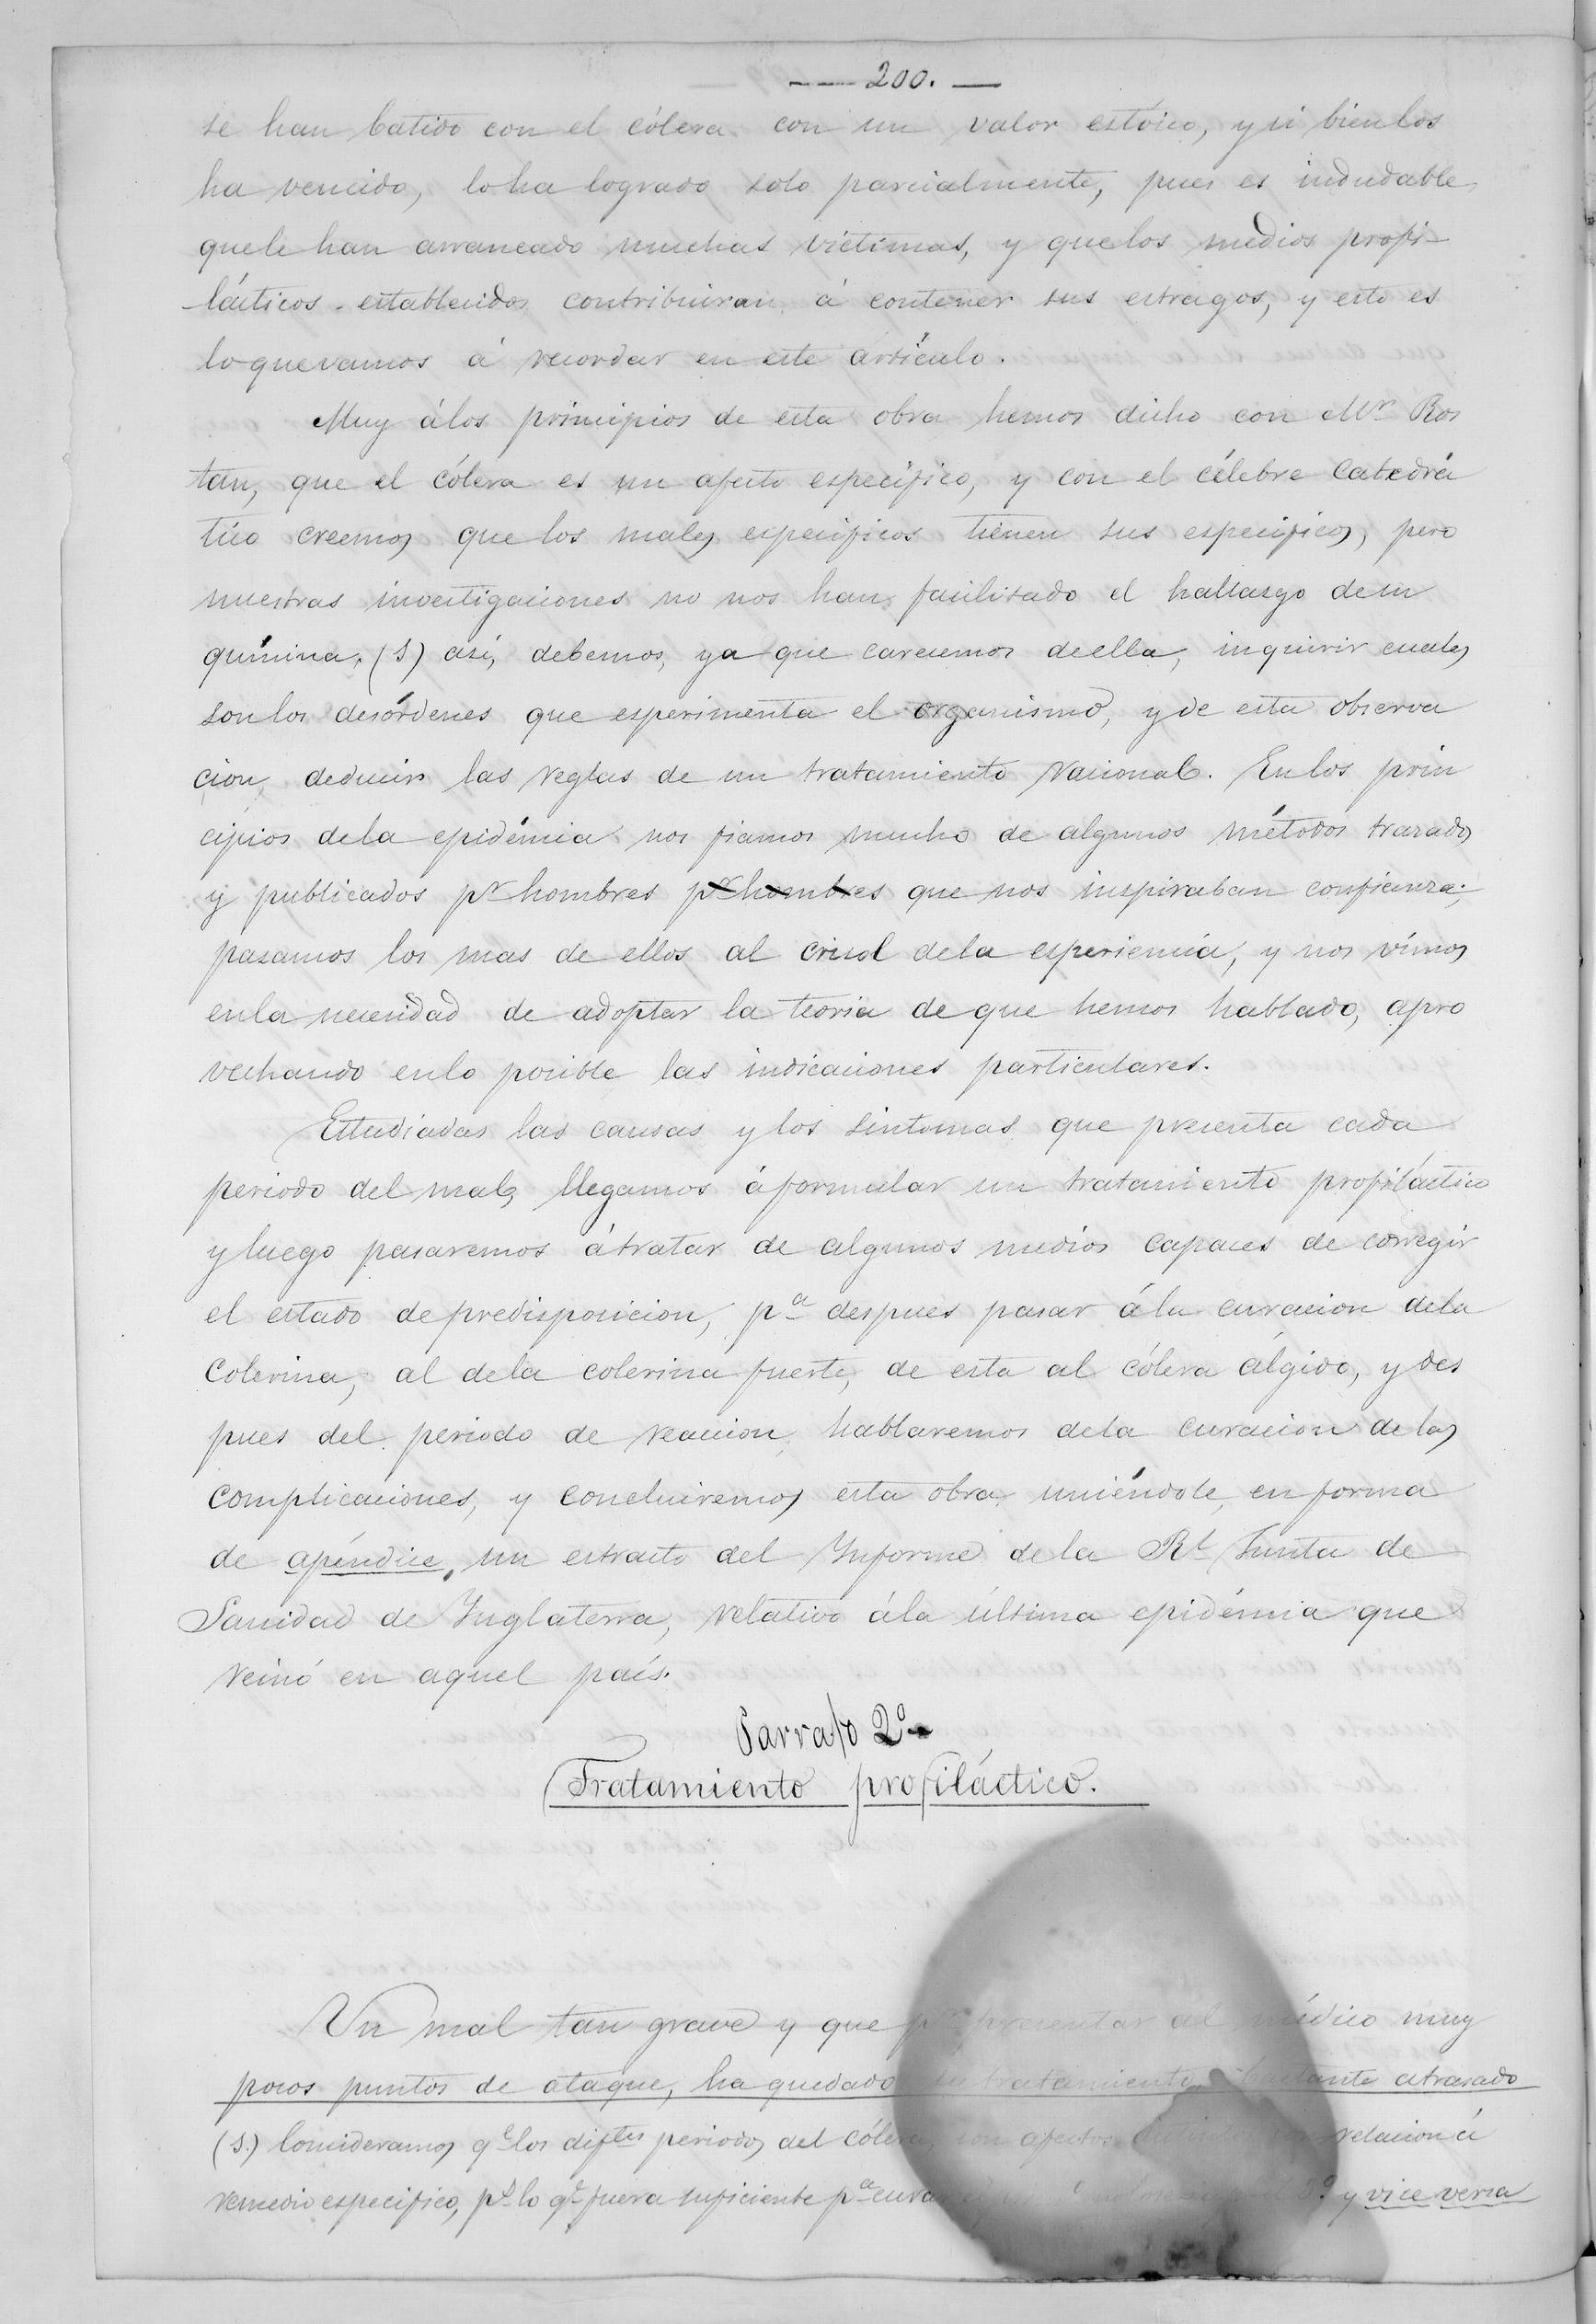 200.
se han batido con el cólera con un valor estóico, y si bien los
ha vencido, lo ha logrado solo parcialmente, pues es indudable
que le han arrancado muchas víctimas, y que los medios profi-
-lácticos establecidos contribuiran á contener sus estragos, y esto es
lo que vamos á recordar en este artículo.
Muy á los principios de esta obra hemos dicho con Mr Ros
tan, que el cólera es un afecto específico, y con el célebre Catedrá
tico creemos que los males específicos tienen sus específicos, pero
nuestras investigaciones no nos han facilitado el hallazgo de su
químina, (1) así, debemos, ya que carecemos de ella, inquirir cuales
son los desórdenes que esperimenta el organismo, y de esta observa
cion, deducir las reglas de un tratamiento racional. En los prin
cipios de la epidémia nos fiamos mucho de algunos métodos trazados
y publicados pr hombres pr hombres que nos inspiraban confianza;
pasamos los mas de ellos al crisol de la esperiencia, y nos vímos
en la necesidad de adoptar la teoria de que hemos hablado, apro
vechando en lo posible las indicaciones particulares.
Estudiadas las causas y los sintomas que presenta cada
periodo del mal, llegamos á formular un tratamiento profiláctico
y luego pasaremos á tratar de algunos medios capaces de corregir
el estado de predisposicion, pa despues pasar á la curacion de la
Colerina, al de la colerina fuerte, de esta al cólera álgido, y des
pues del periodo de reaccion, hablaremos de la curacion de las
complicaciones, y concluiremos esta obra uniéndole, en forma
de apéndice, un estracto del Informe de la Rl Junta de
Sanidad de Inglaterra, relativo á la última epidémia que
reinó en aquel país.
Parrafo 2o
Tratamiento profiláctico.
Un mal tan grave y que presentar al médico muy
pocos puntos de ataque, ha quedado su tratamiento, bastante atrasado
(1.) Consideramos qe los diftes periodos del cólera, son afectos relacion á
remedio especifico, pr lo qe fuera suficiente pa curar 3o y vice versa